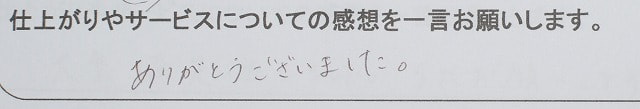 仕上がりやサービスについての感想を一言お願いします。
ありがとうございました。